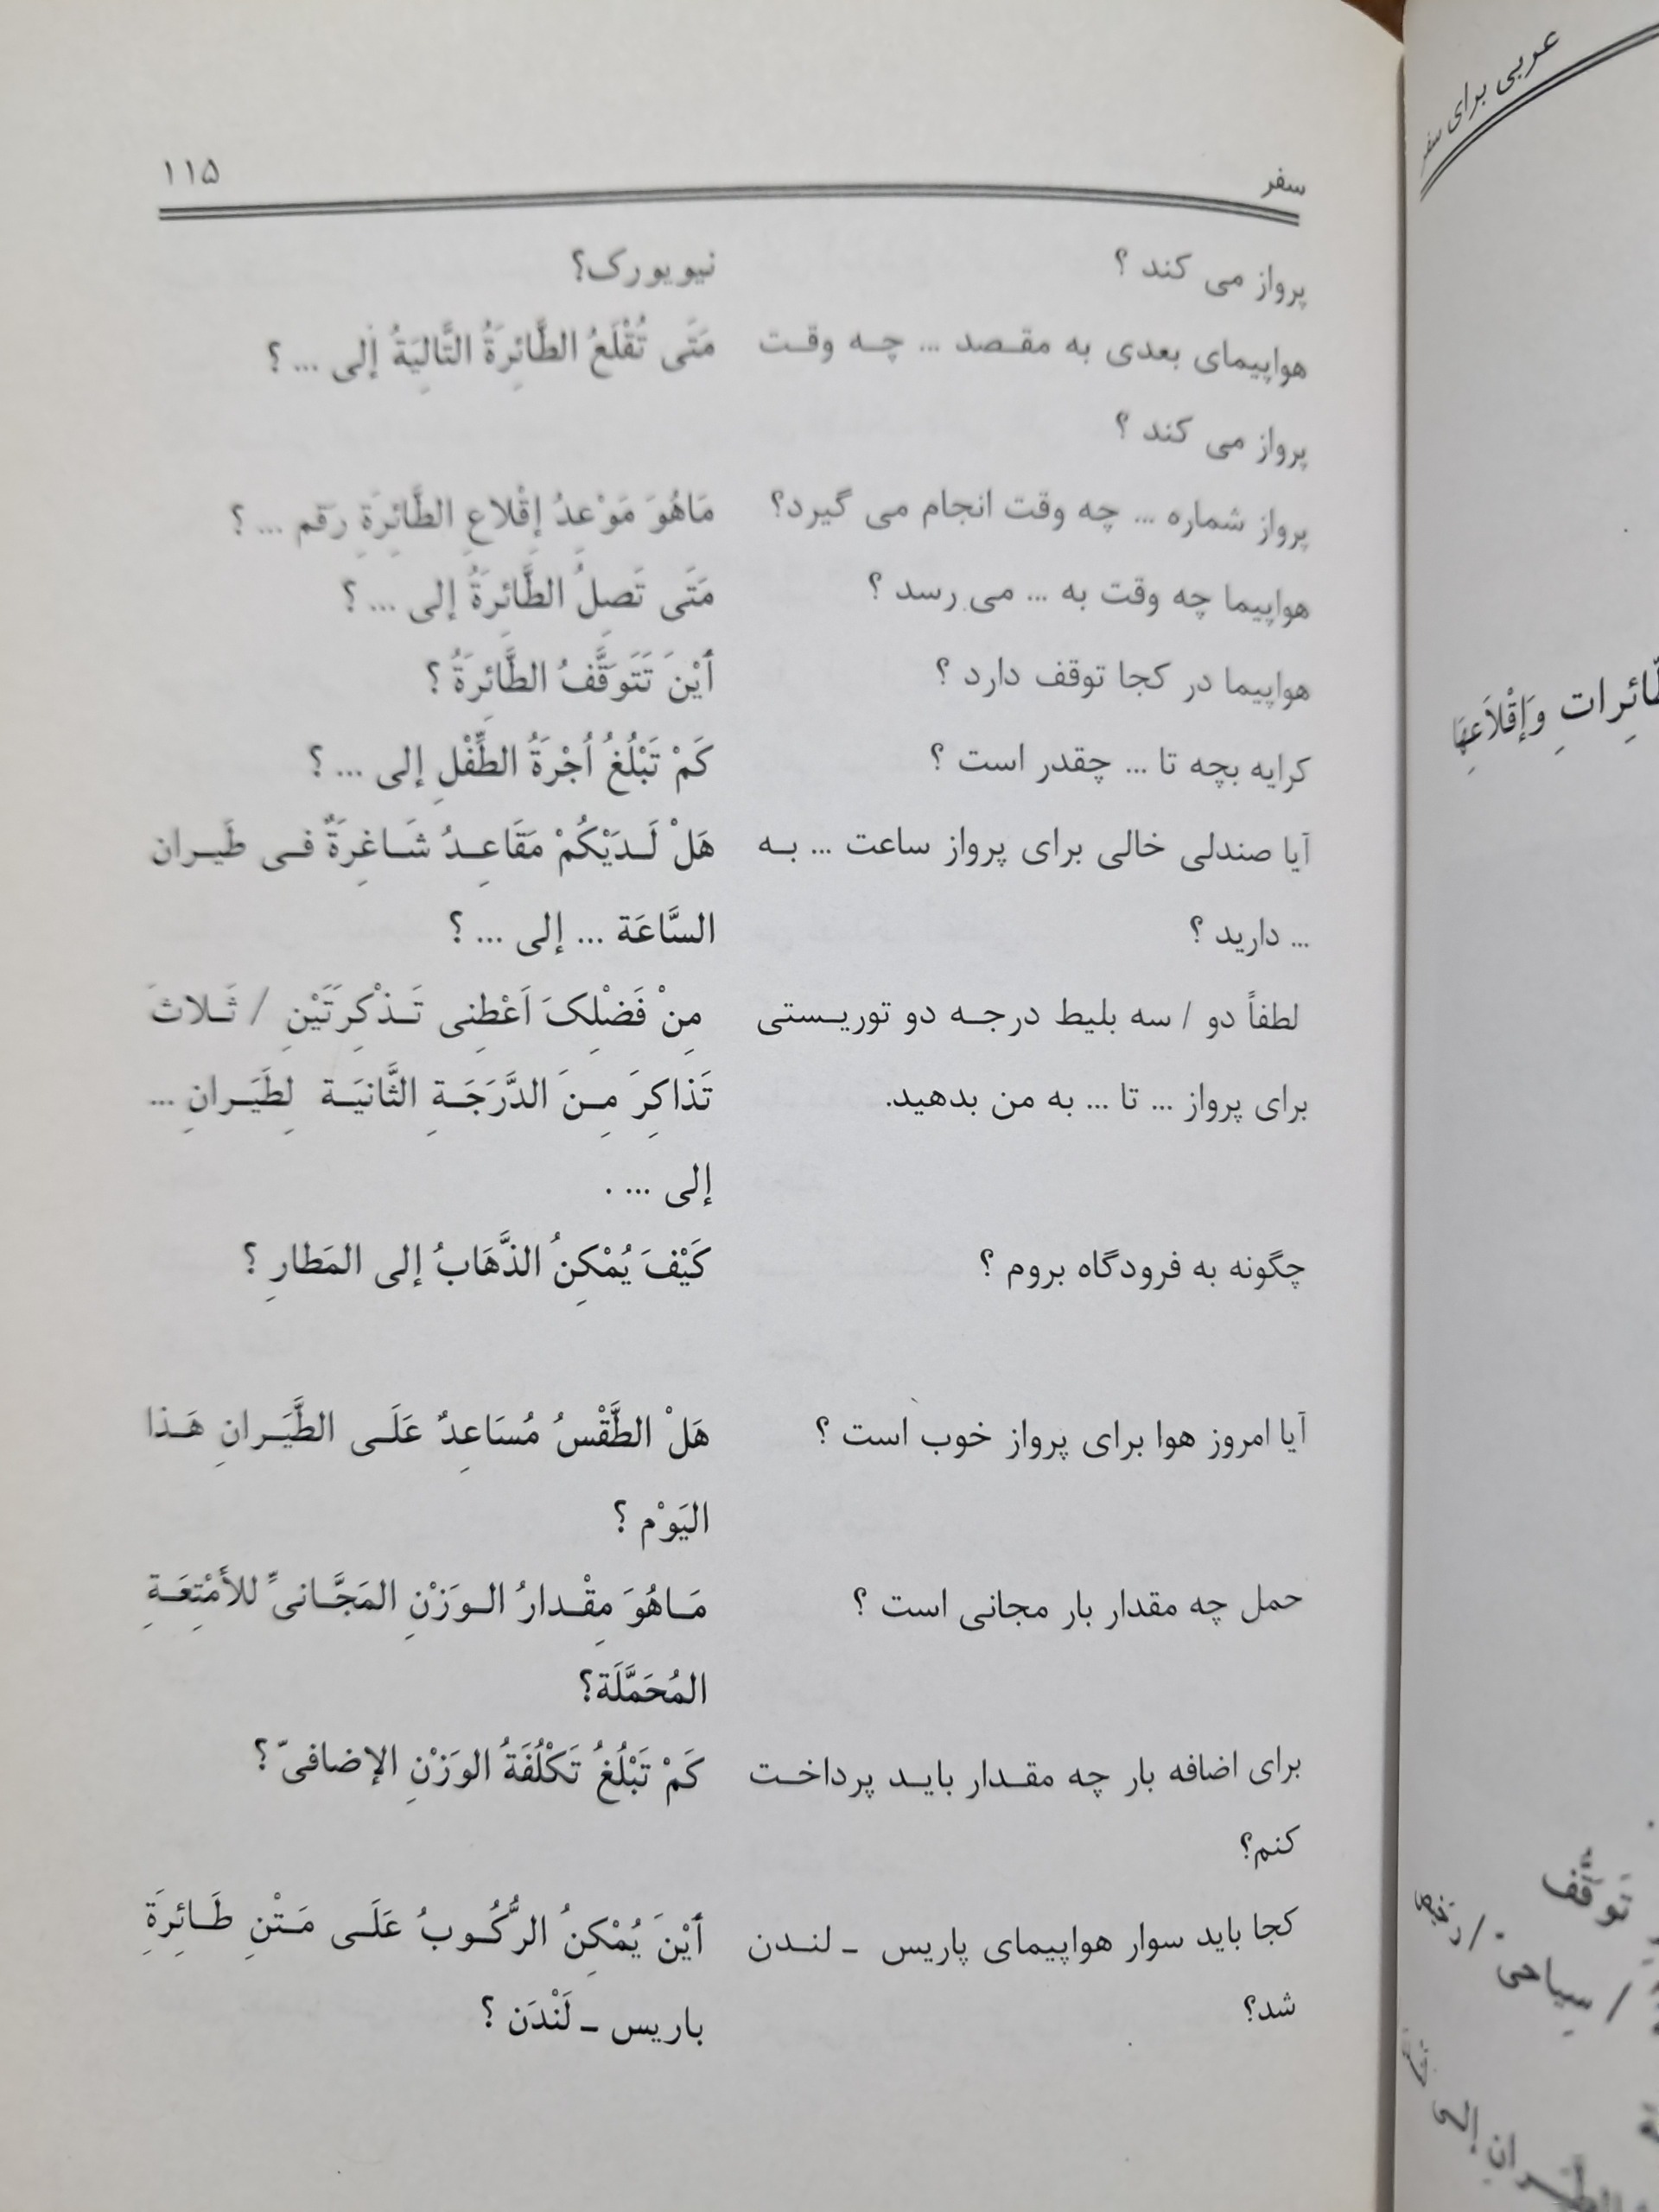 عربی برای سفر
سفر ۱۱۵
پرواز می کند ؟ نیویورک؟
هواپیمای بعدی به مقصد ... چه وقت مَتَی تُقْلَعُ الطَّائِرَةُ التَّالِیَةُ إلی ... ؟
پرواز می کند ؟
پرواز شماره ... چه وقت انجام می گیرد؟ مَاهُوَ مَوْعِدُ إقْلاعِ الطَّائِرَةِ رَقم ... ؟
هواپیما چه وقت به ... می رسد ؟ مَتَی تَصِلُ الطَّائِرَةُ إلی ... ؟
هواپیما در کجا توقف دارد ؟ أیْنَ تَتَوَقَّفُ الطَّائِرَةُ ؟
کرایه بچه تا ... چقدر است ؟ کَمْ تَبْلُغُ اُجْرَةُ الطِّفْلِ إلی ... ؟
آیا صندلی خالی برای پرواز ساعت ... به هَلْ لَدَیْکُمْ مَقَاعِدُ شَاغِرَةٌ فی طَیران
... دارید ؟ السَّاعَة ... إلی ... ؟
لطفاً دو / سه بلیط درجه دو توریستی مِنْ فَضْلِکَ اَعْطِنی تَذْکِرَتَیْنِ / ثَلاثَ
برای پرواز ... تا ... به من بدهید. تَذاکِرَ مِنَ الدَّرَجَةِ الثَّانیَة لِطَیَرانِ ...
إلی ... .
چگونه به فرودگاه بروم ؟ کَیْفَ یُمْکِنُ الذَّهَابُ إلی المَطارِ ؟
آیا امروز هوا برای پرواز خوب است ؟ هَلْ الطَّقْسُ مُسَاعِدٌ عَلَی الطَّیَرانِ هَذا
الیَوْم ؟
حمل چه مقدار بار مجانی است ؟ مَاهُوَ مِقْدارُ الوَزْنِ المَجَّانیِّ للأمْتِعَةِ
المُحَمَّلَة؟
برای اضافه بار چه مقدار باید پرداخت کَمْ تَبْلُغُ تَکْلُفَةُ الوَزْنِ الإضافیّ ؟
کنم؟
کجا باید سوار هواپیمای پاریس ـ لندن أیْنَ یُمْکِنُ الرُّکُوبُ عَلَی مَتْنِ طَائِرَةِ
شد؟ باریس ـ لَنْدَن ؟
وَإقْلاَعِهَا
تَوَقَّف
/ سیاحی
إلی